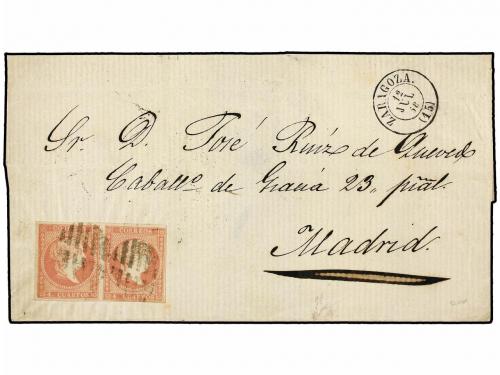 ZARAGOZA.
12
JUL
58
(15)
Sr. D. José Ruíz de Quevedo
Caballo. de Graciá 23,, pñal.
Madrid.
CORREOS
4 CUARTOS
4 CUARTOS